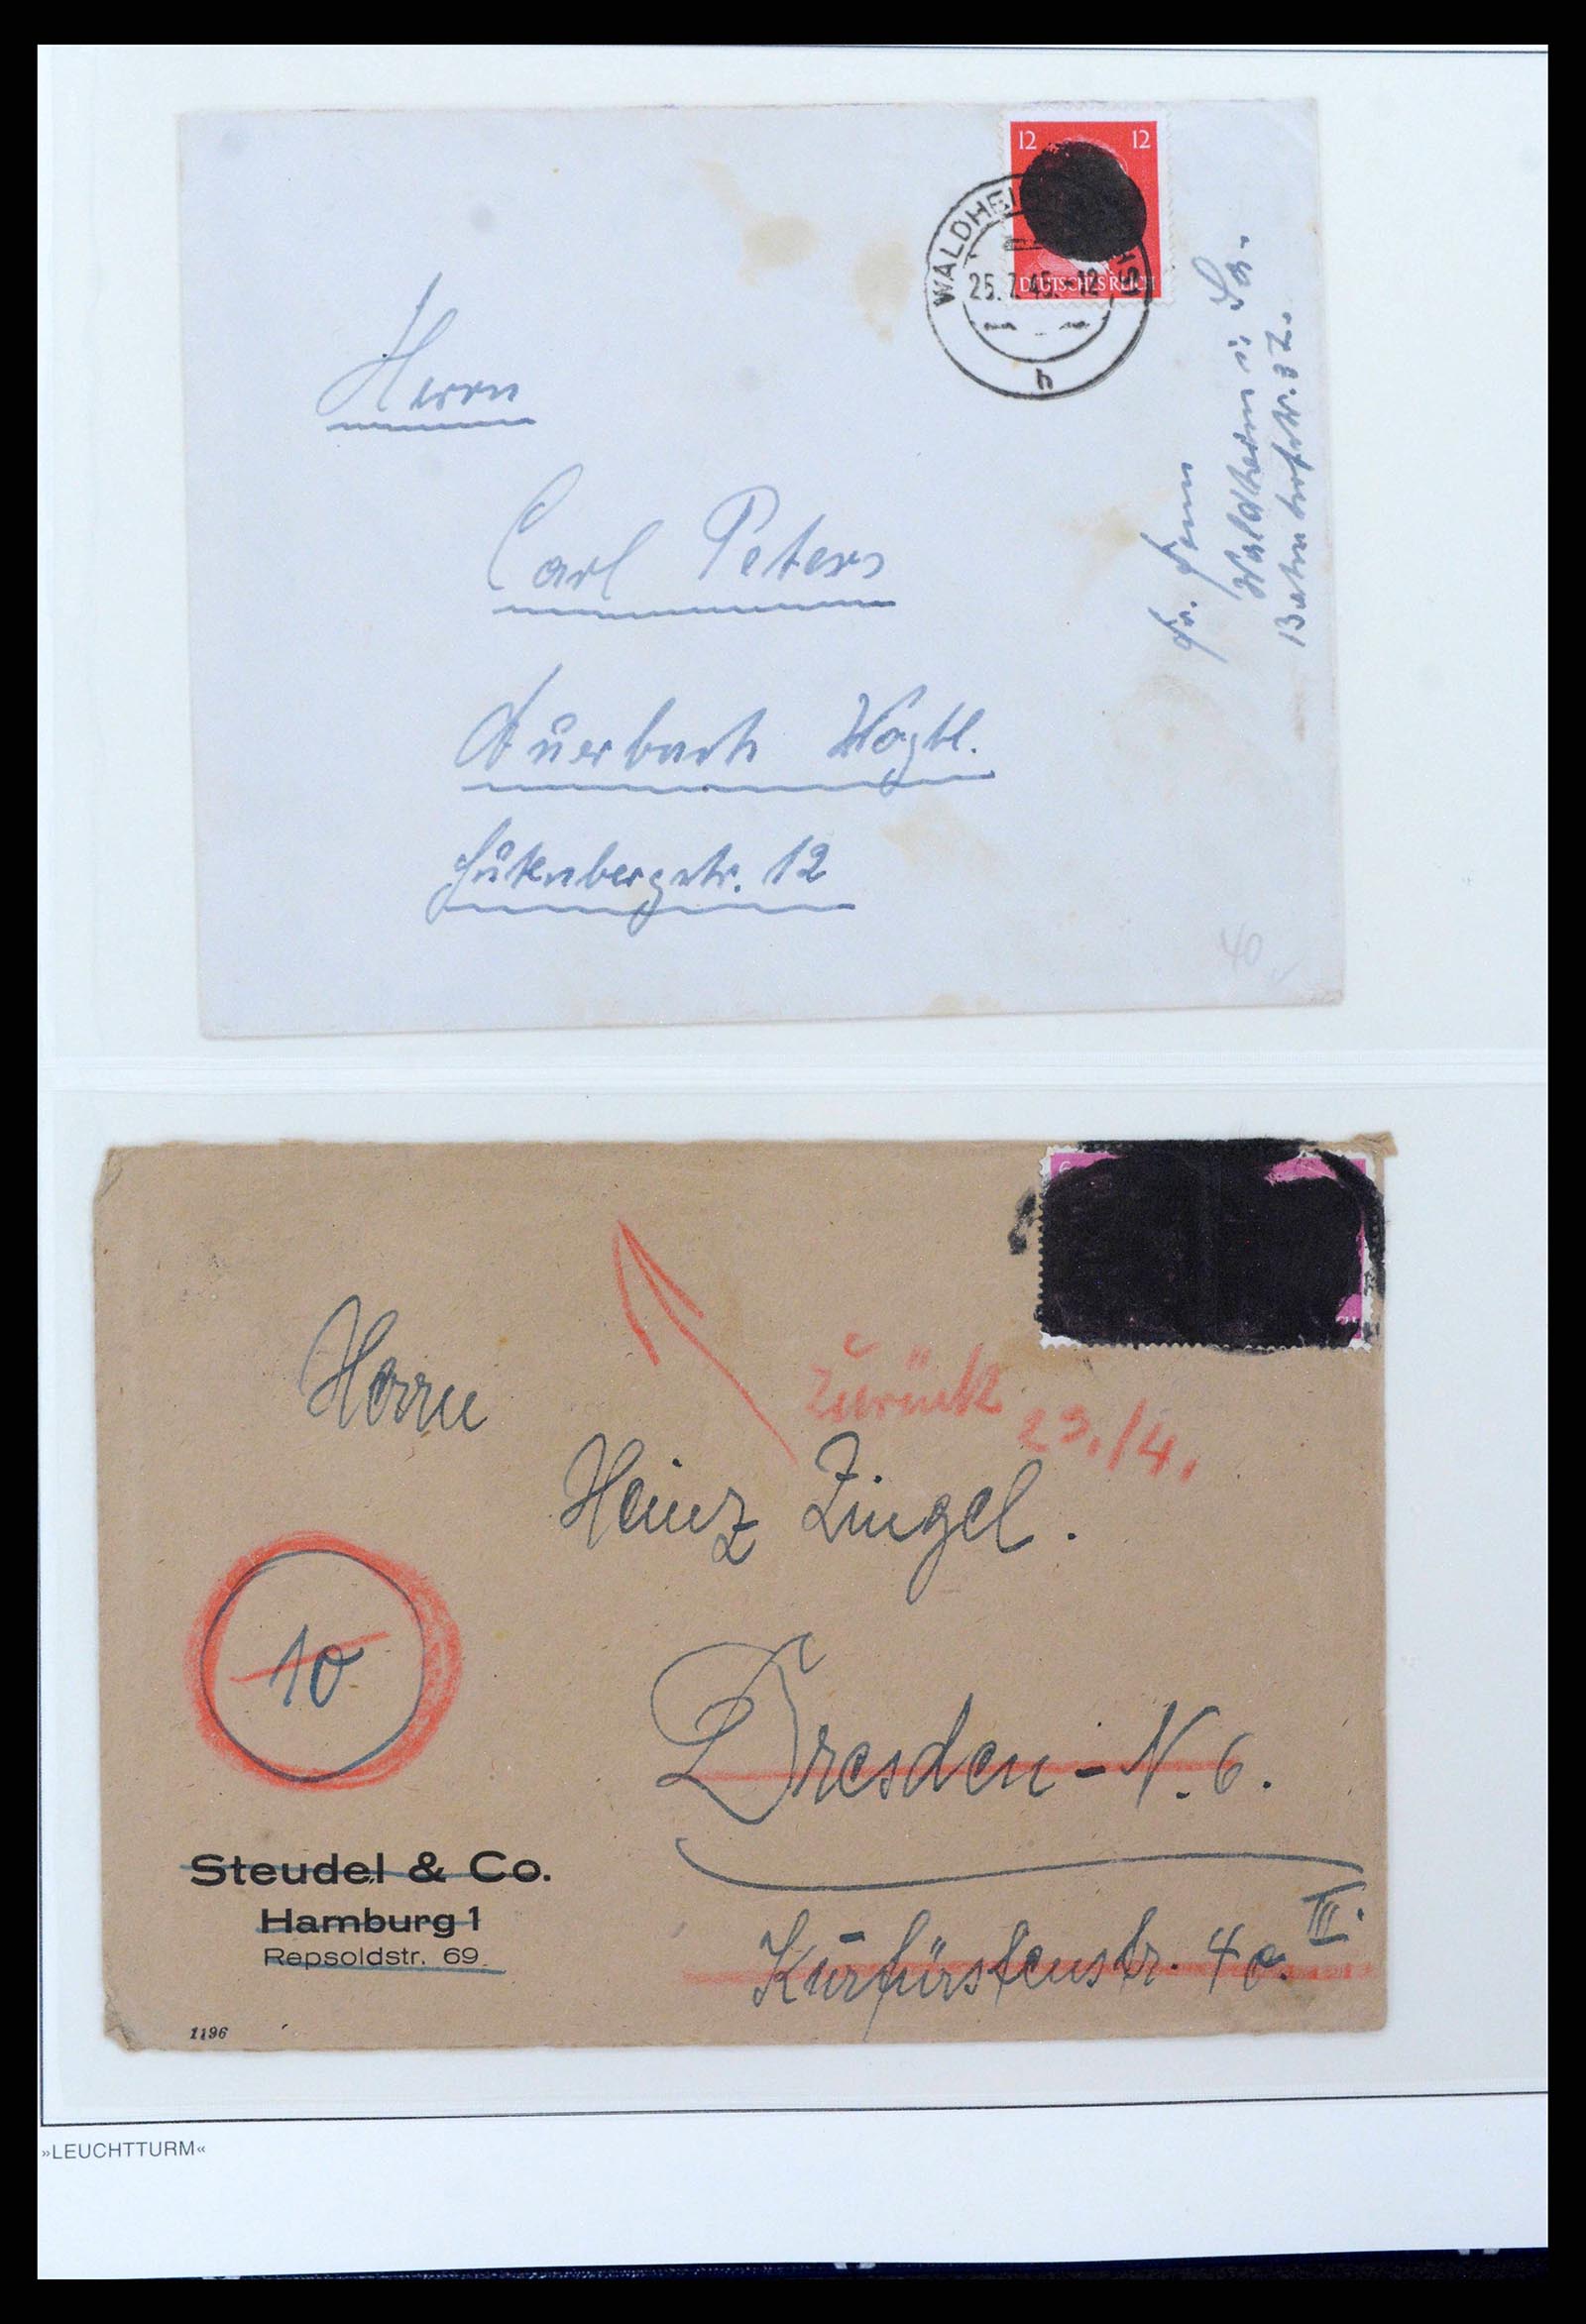 12 12
WALDHEI
25.7.45.-12
DEUTSCHES REICH
h
Herrn
Carl Peters
Auerbach Vogtl.
Gutenbergstr. 12
Waldheim i. Sa.
Bahnhofstr. 32.
40
6
zurück
23./4.
Herrn
Heinz Zingel.
10
Dresden-N. 6.
Kurfürstenstr. 40. III.
Steudel & Co.
Hamburg 1
Repsoldstr. 69
1196
»LEUCHTTURM«